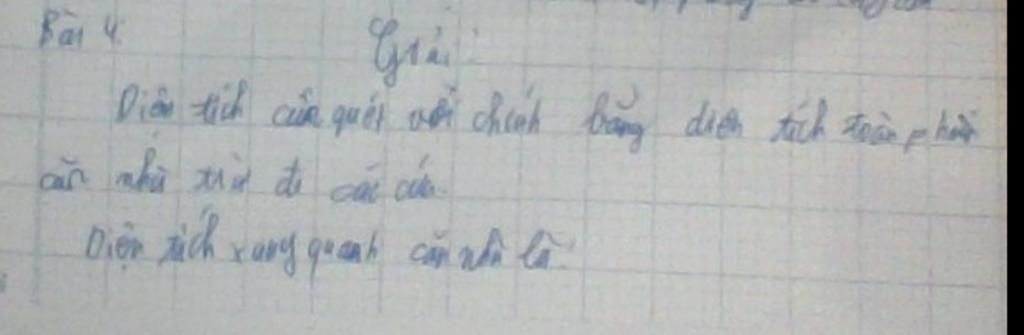 Bài 4.
Giải:
Diện tích cần quét vôi chính bằng diện tích toàn phần
căn nhà trừ đi các cửa.
Diện tích xung quanh căn nhà là: